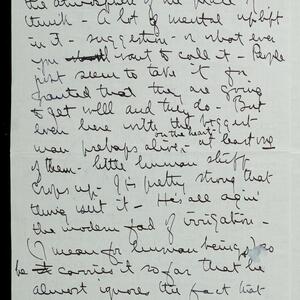 the atmosphere of the place I
think – A lot of mental uplift
in it – suggestion – or what ever
you want to call it – People
just seem to take it for
granted that they are going
to get well and they do – But
even here with the biggest
on the heart
man perhaps alive – at least one
of them – little human stuff
crops up – It's pretty strong that
thing isn't it – He's all agin'
the modern fad of irrigation –
(I mean for human beings) so
he carries it so far that he
almost ignores the fact that